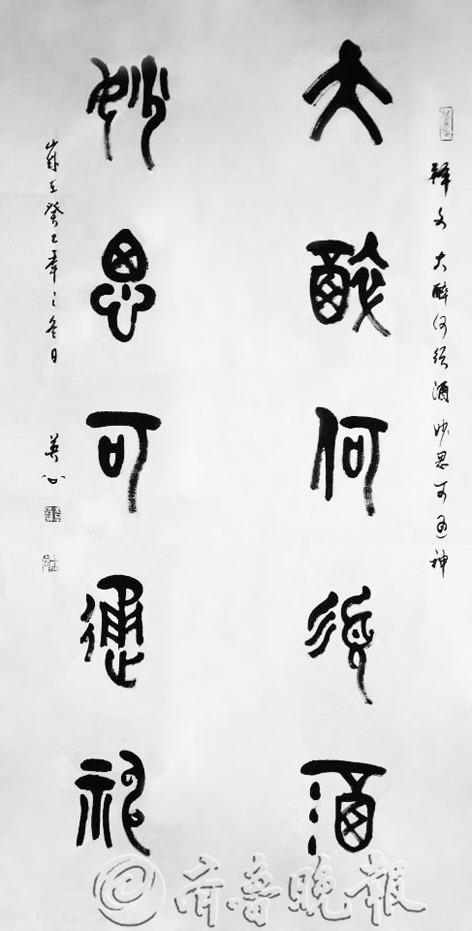 釋文 大醉何須酒 妙思可通神
大醉何須酒
妙思可通神
歲在癸巳年之冬日
齐鲁晚报